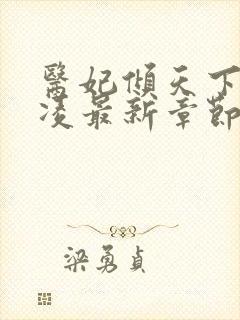 醫妃傾天下
凌最新章節
梁勇貞